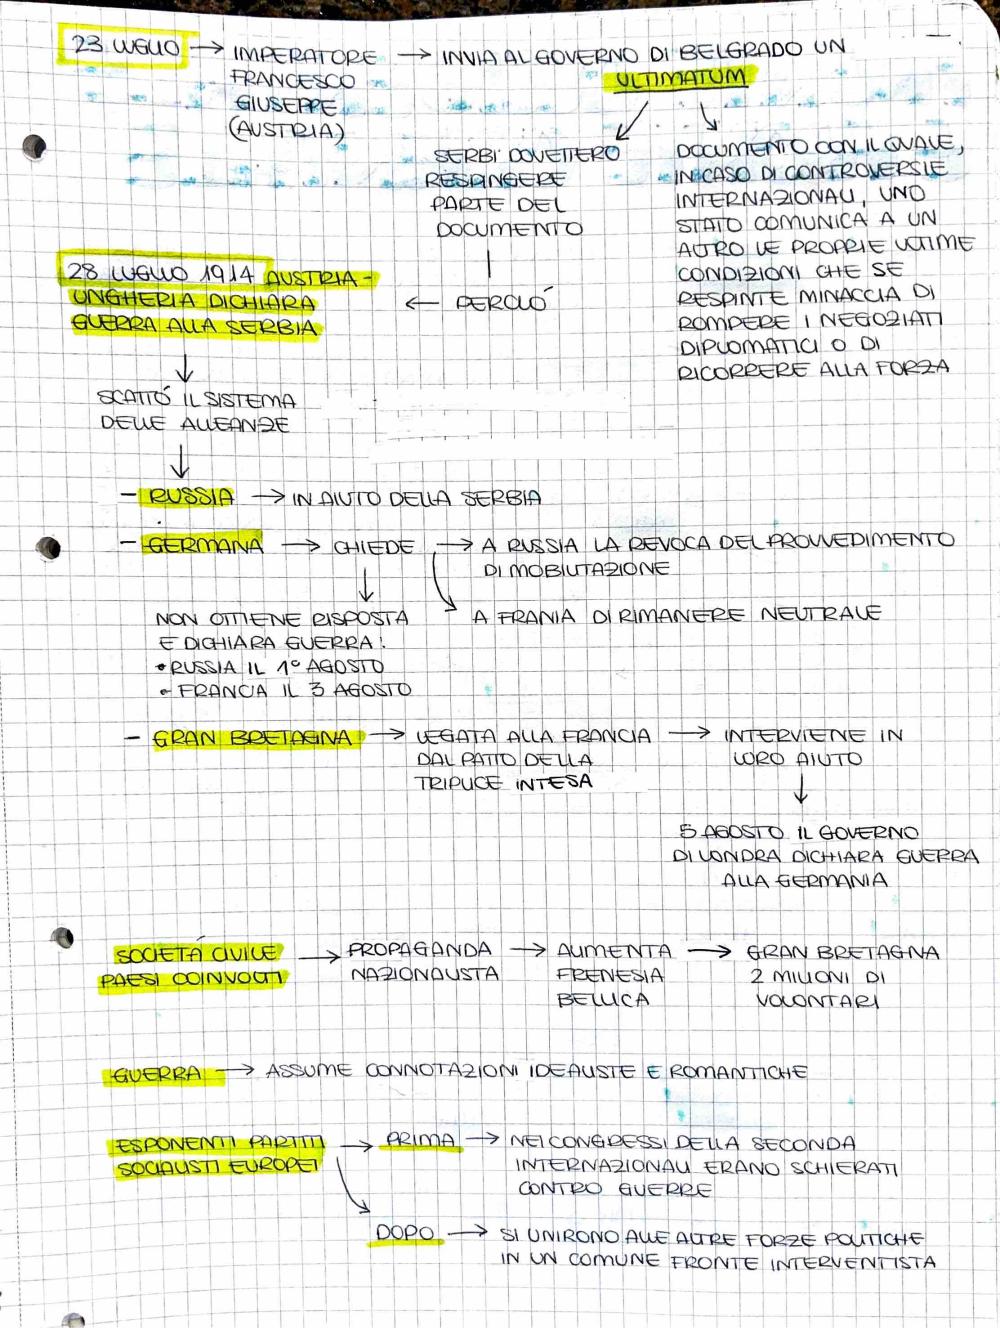 23 LUGLIO → IMPERATORE FRANCESCO GIUSEPPE (AUSTRIA) → INVIA AL GOVERNO DI BELGRADO UN
ULTIMATUM
SERBI DOVETTERO
RESPINGERE
PARTE DEL
DOCUMENTO
DOCUMENTO CON IL QUALE,
IN CASO DI CONTROVERSIE
INTERNAZIONALI, UNO
STATO COMUNICA A UN
ALTRO LE PROPRIE ULTIME
CONDIZIONI CHE SE
RESPINTE MINACCIA DI
ROMPERE I NEGOZIATI
DIPLOMATICI O DI
RICORRERE ALLA FORZA
← PERCIÓ
28 LUGLIO 1914 AUSTRIA-
UNGHERIA DICHIARA
GUERRA ALLA SERBIA
SCATTÓ IL SISTEMA
DELLE ALLEANZE
- RUSSIA → IN AIUTO DELLA SERBIA
- GERMANA → CHIEDE → A RUSSIA LA REVOCA DEL PROVVEDIMENTO
DI MOBILITAZIONE
A FRANIA DI RIMANERE NEUTRALE
NON OTTIENE RISPOSTA
E DICHIARA GUERRA:
• RUSSIA IL 1° AGOSTO
• FRANCIA IL 3 AGOSTO
- GRAN BRETAGNA → LEGATA ALLA FRANCIA
DAL PATTO DELLA
TRIPLICE INTESA
→ INTERVIENE IN
LORO AIUTO
5 AGOSTO IL GOVERNO
DI LONDRA DICHIARA GUERRA
ALLA GERMANIA
SOCIETÁ CIVILE
PAESI COINVOLTI
→ PROPAGANDA
NAZIONALISTA
→ AUMENTA
FRENESIA
BELLICA
→ GRAN BRETAGNA
2 MILIONI DI
VOLONTARI
GUERRA → ASSUME CONNOTAZIONI IDEALISTE E ROMANTICHE
ESPONENTI PARTITI
SOCIALISTI EUROPEI
→ PRIMA → NEI CONGRESSI DELLA SECONDA
INTERNAZIONALI ERANO SCHIERATI
CONTRO GUERRE
DOPO → SI UNIRONO ALLE ALTRE FORZE POLITICHE
IN UN COMUNE FRONTE INTERVENTISTA